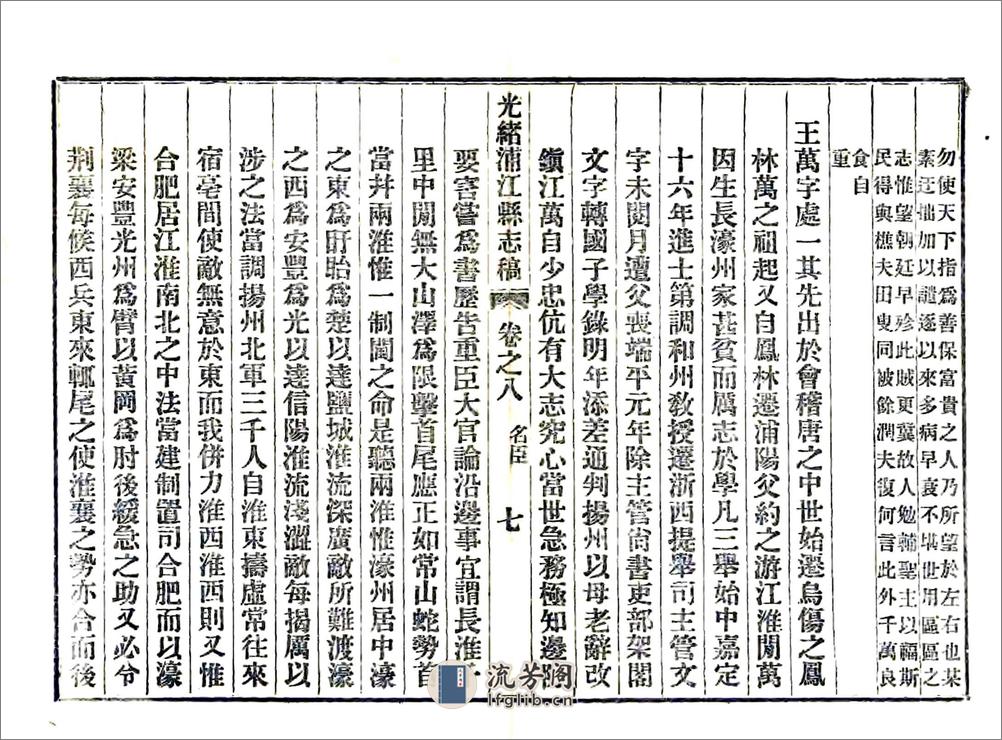 勿使天下指爲善保富貴之人乃所望於左右也某
素迂拙加以譴逐以來多病早衰不堪世用區區之
志惟望朝廷早殄此賊更冀故人勉輔聖主以福斯
民得與樵夫田叟同被餘潤夫復何言此外千萬良
食自
重
王萬字處一其先出於會稽唐之中世始遷烏傷之鳳
林萬之祖起又自鳳林遷浦陽父約之游江淮閒萬
因生長濠州家甚貧而厲志於學凡三舉始中嘉定
十六年進士第調和州教授遷浙西提舉司主管文
字未閱月遭父喪端平元年除主管尙書吏部架閣
文字轉國子學錄明年添差通判揚州以母老辭改
鎭江萬自少忠伉有大志究心當世急務極知邊
光緒浦江縣志稿 卷之八 名臣 七
要害嘗爲書歷告重臣大官論沿邊事宜謂長淮
里中閒無大山澤爲限擊首尾應正如常山蛇勢首
當幷兩淮惟一制閫之命是聽兩淮惟濠州居中濠
之東爲盱眙爲楚以達鹽城淮流深廣敵所難渡濠
之西爲安豐爲光以達信陽淮流淺澀敵每揭厲以
涉之法當調揚州北軍三千人自淮東擣虛常往來
宿亳間使敵無意於東而我併力淮西淮西則又惟
合肥居江淮南北之中法當建制置司合肥而以濠
梁安豐光州爲臂以黃岡爲肘後緩急之助又必令
荆襄每候西兵東來輒尾之使淮襄之勢亦合而後
流芳閣
lfglib.cn